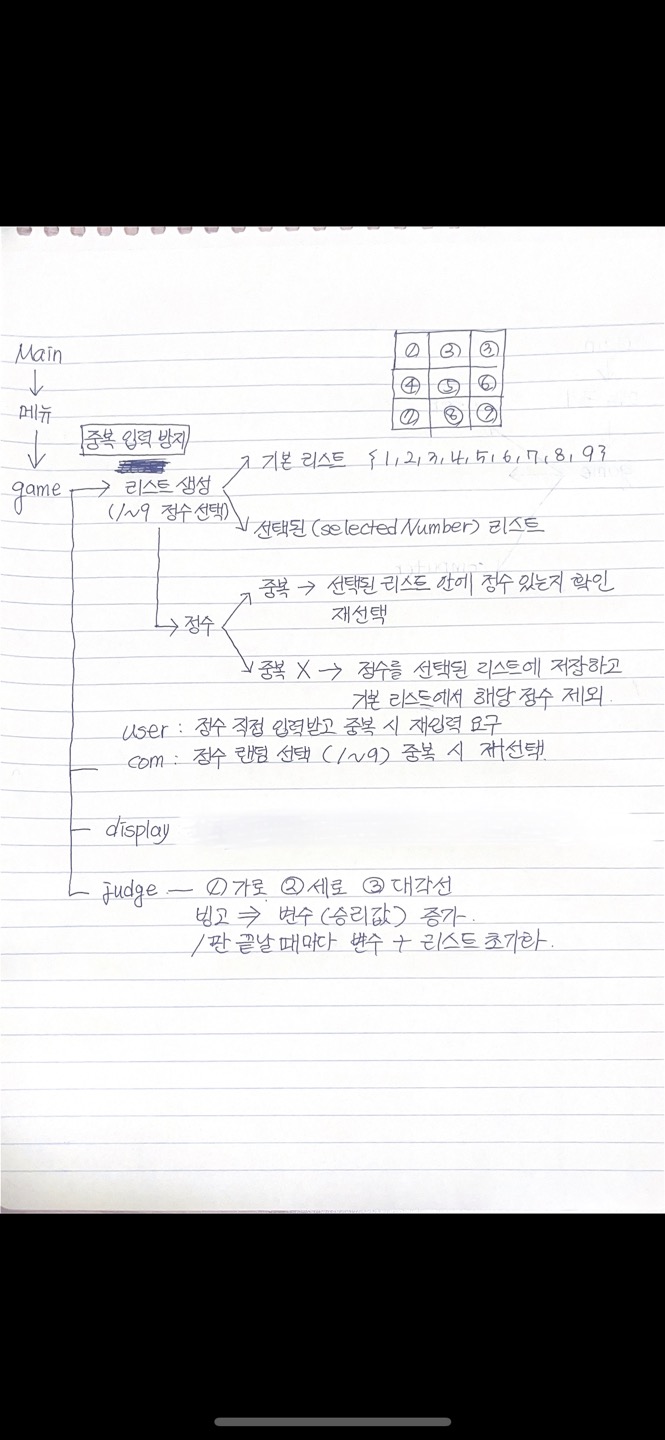 Main
↓
메뉴
↓
game
① ② ③
④ ⑤ ⑥
⑦ ⑧ ⑨
중복 입력 방지
→ 리스트 생성
(1~9 정수선택)
↗ 기본 리스트 {1, 2, 3, 4, 5, 6, 7, 8, 9}
↘ 선택된 (selected Number) 리스트
→ 정수
중복 → 선택된 리스트 안에 정수 있는지 확인
재선택
중복 X → 정수를 선택된 리스트에 저장하고
기본 리스트에서 해당 정수 제외.
user : 정수 직접 입력받고 중복 시 재입력 요구
com : 정수 랜덤 선택 (1~9) 중복 시 재선택.
display
judge — ①가로 ②세로 ③대각선
빙고 ⇒ 변수 (승리값) 증가.
1판 끝날 때마다 변수 + 리스트 초기화.